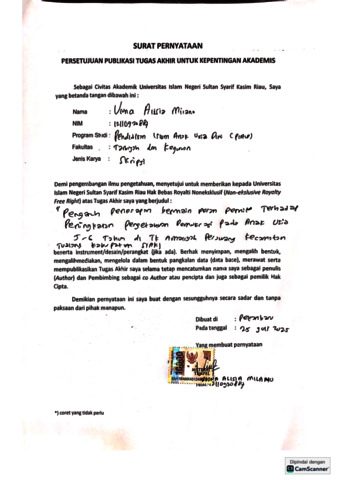 SURAT PERNYATAAN
PERSETUJUAN PUBLIKASI TUGAS AKHIR UNTUK KEPENTINGAN AKADEMIS
Sebagai Civitas Akademik Universitas Islam Negeri Sultan Syarif Kasim Riau, Saya
yang betanda tangan dibawah ini :
Nama :
NIM :
Program Studi : Islam Anak Usia Dini (PIAUD)
Fakultas : Tarbiyah dan Keguruan
Jenis Karya : Skripsi
Demi pengembangan ilmu pengetahuan, menyetujui untuk memberikan kepada Universitas
Islam Negeri Sultan Syarif Kasim Riau Hak Bebas Royalti Noneksklusif (Non-ekslusive Royalty
Free Right) atas Tugas Akhir saya yang berjudul :
" Pengaruh Penerapan bermain peran Terhadap
Peningkatan Pengetahuan Pada Anak Usia
5-6 Tahun di TK Kecamatan
Tualang Kabupaten Siak
beserta instrument/desain/perangkat (jika ada). Berhak menyimpan, mengalih bentuk,
mengalihmediakan, mengelola dalam bentuk pangkalan data (data base), merawat serta
mempublikasikan Tugas Akhir saya selama tetap mencatumkan nama saya sebagai penulis
(Author) dan Pembimbing sebagai co Author atau pencipta dan juga sebagai pemilik Hak
Cipta.
Demikian pernyataan ini saya buat dengan sesungguhnya secara sadar dan tanpa
paksaan dari pihak manapun.
Dibuat di : Pekanbaru
Pada tanggal : 25 Juli 2025
Yang membuat pernyataan
ALISIA MILANO
*) coret yang tidak perlu
Dipindai dengan
CamScanner